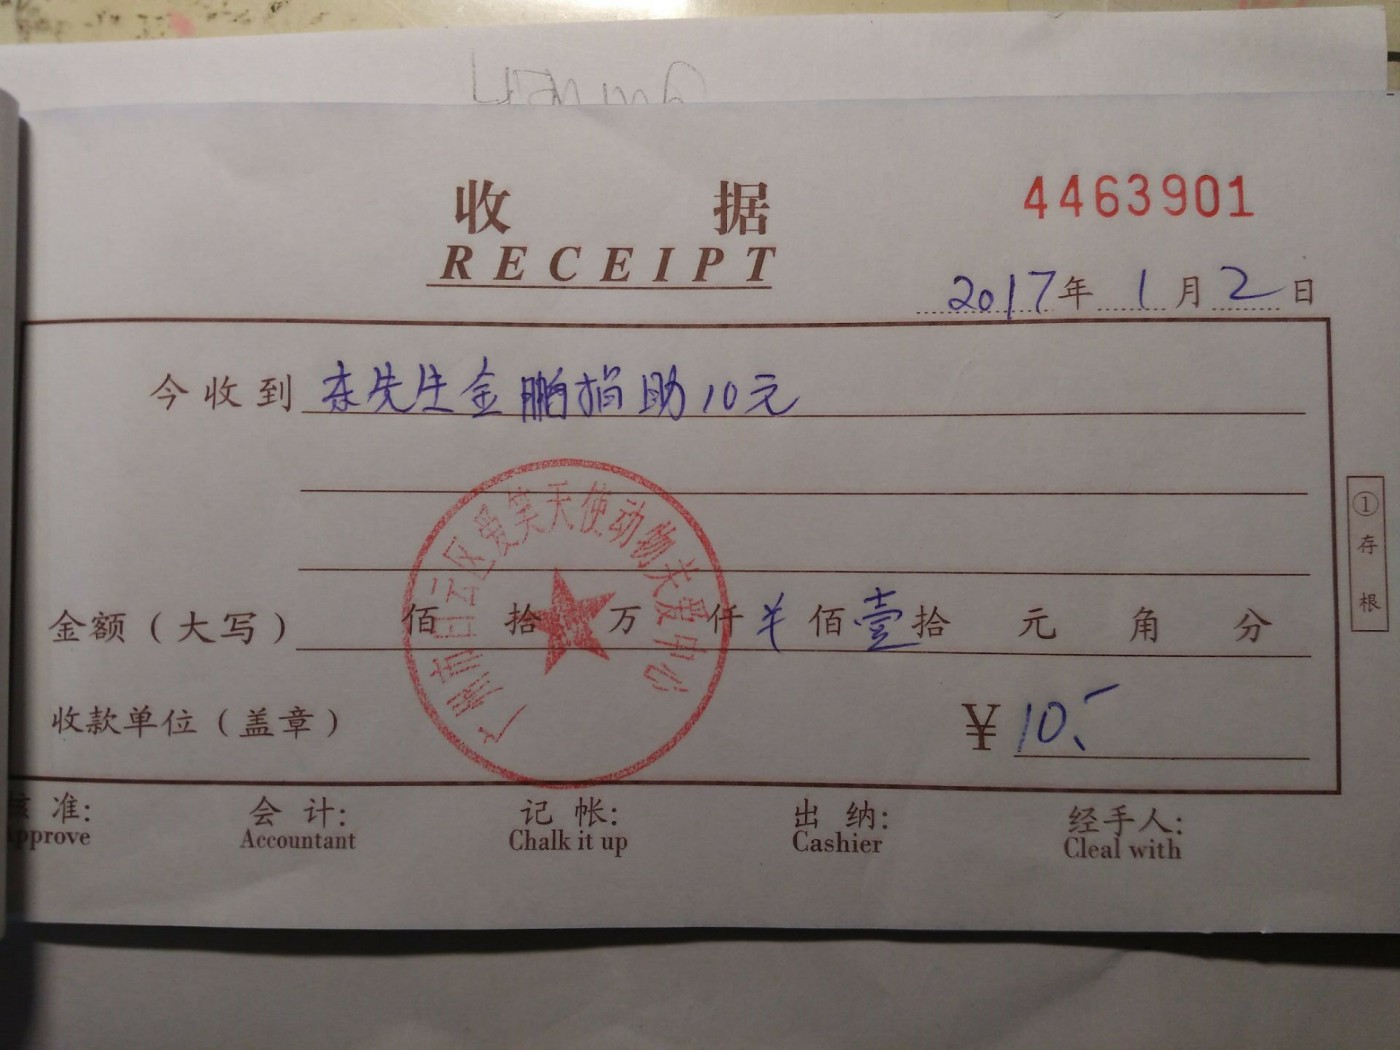 收 据
4463901
RECEIPT
2017年1月2日
今收到 东先生金鹏捐助10元
广州市白云区爱笑天使动物关爱中心
金额（大写） 佰 拾 万 仟 ¥ 佰 壹 拾 元 角 分
收款单位（盖章） ¥ 10.-
①存根
核 准: 会 计: 记 帐: 出 纳: 经手人:
approve Accountant Chalk it up Cashier Cleal with